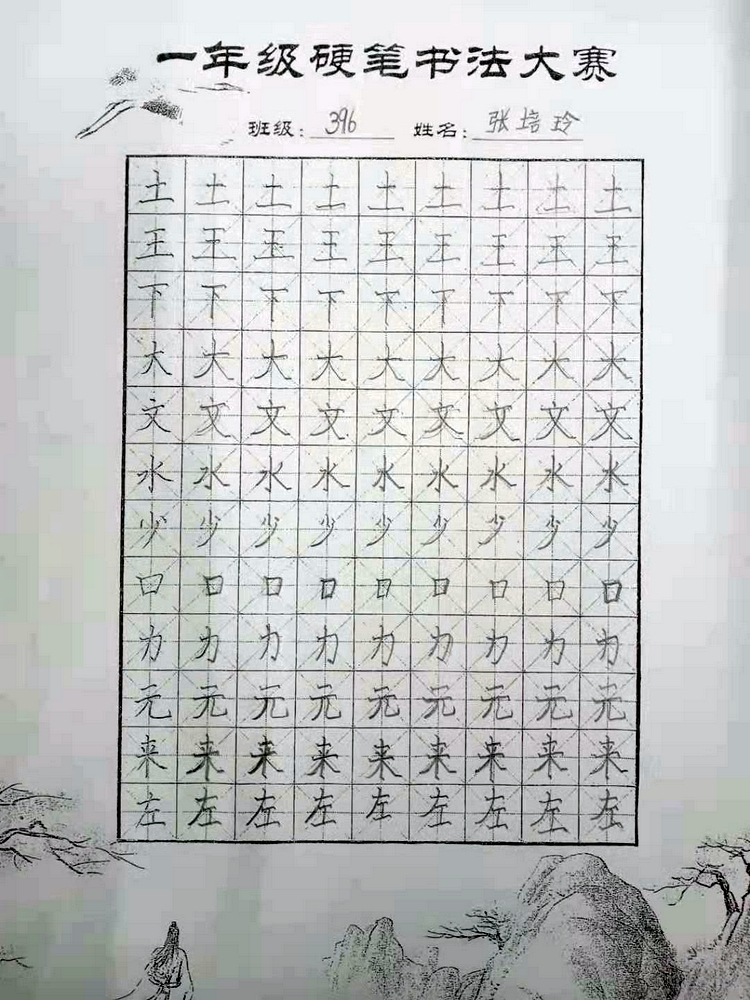 一年级硬笔书法大赛
班级: 396 姓名: 张培玲
土 土 土 土 土 土 土 土 土
王 王 王 王 王 王 王 王 王
下 下 下 下 下 下 下 下 下
大 大 大 大 大 大 大 大 大
文 文 文 文 文 文 文 文 文
水 水 水 水 水 水 水 水 水
少 少 少 少 少 少 少 少 少
口 口 口 口 口 口 口 口 口
力 力 力 力 力 力 力 力 力
元 元 元 元 元 元 元 元 元
来 来 来 来 来 来 来 来 来
左 左 左 左 左 左 左 左 左